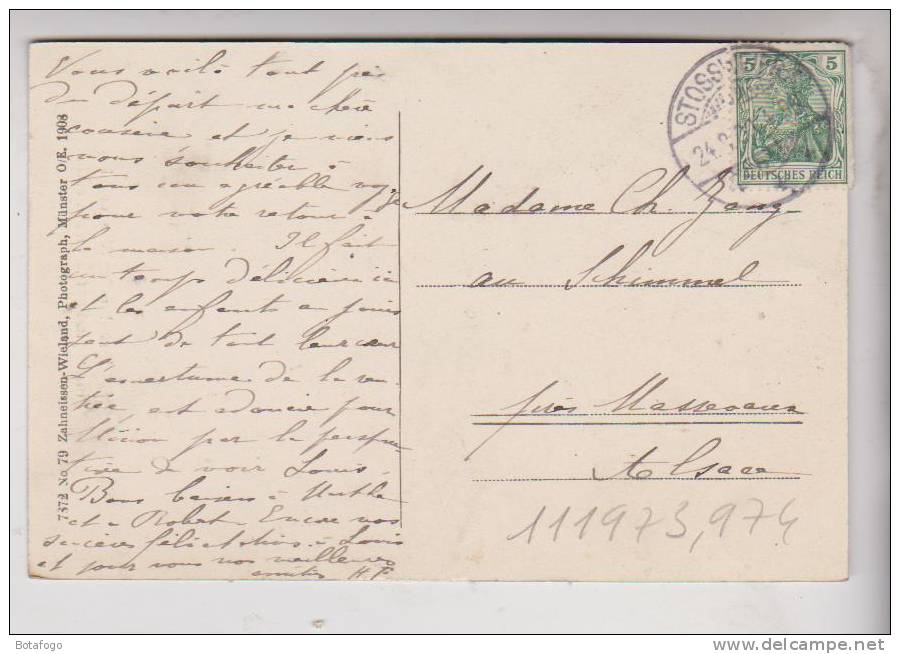 Vous voilà tout près
du départ ma chère
cousine et je viens
vous souhaiter à
tous un agréable voyage
pour votre retour à
la maison. Il fait
un temps délicieux ici
et les enfants en jouis
sent de tout leur cœur
L'amertume de la ren-
trée est adoucie pour
par la perspec-
tive de voir Louis.
Bons baisers à Marthe
et à Robert. Encore nos
sincères félicitations à Louis
et pour vous nos meilleures
amitiés H.F.
7372 No. 79 Zahneissen-Wieland, Photograph, Münster O/E. 1908
STOSSW
24.
5 5
DEUTSCHES REICH
Madame Ch. Zang
au Schimmel
près Massevaux
Alsace
111973,974
Botafogo
www.delcampe.net